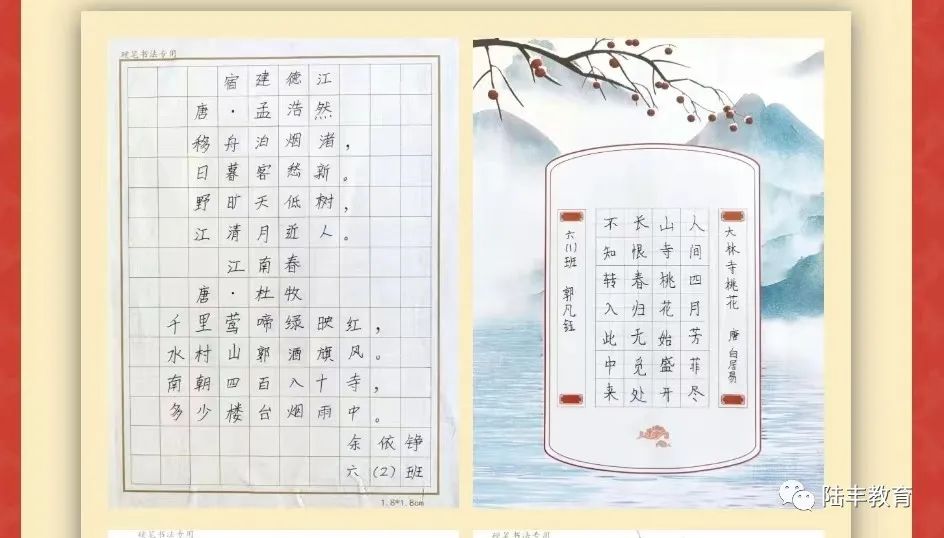 硬笔书法专用
宿建德江
唐·孟浩然
移舟泊烟渚，
日暮客愁新。
野旷天低树，
江清月近人。
江南春
唐·杜牧
千里莺啼绿映红，
水村山郭酒旗风。
南朝四百八十寺，
多少楼台烟雨中。
余依铮
六(2)班
1.8*1.8cm
大林寺桃花 唐 白居易
人间四月芳菲尽
山寺桃花始盛开
长恨春归无觅处
不知转入此中来
六(1)班 郭凡钰
陆丰教育
硬笔书法专用
硬笔书法专用